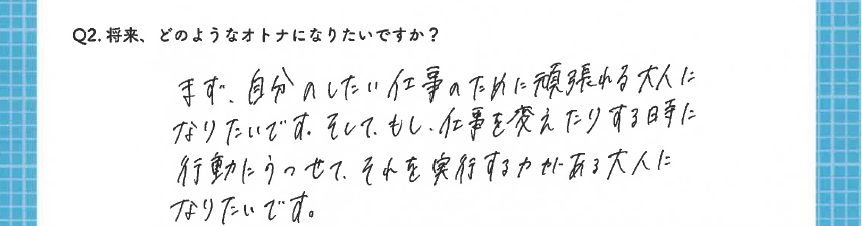 Q2. 将来、どのようなオトナになりたいですか？
まず、自分のしたい仕事のために頑張れる大人に
なりたいです。そして、もし、仕事を変えたりする時に
行動にうつせて、それを実行する力がある大人に
なりたいです。